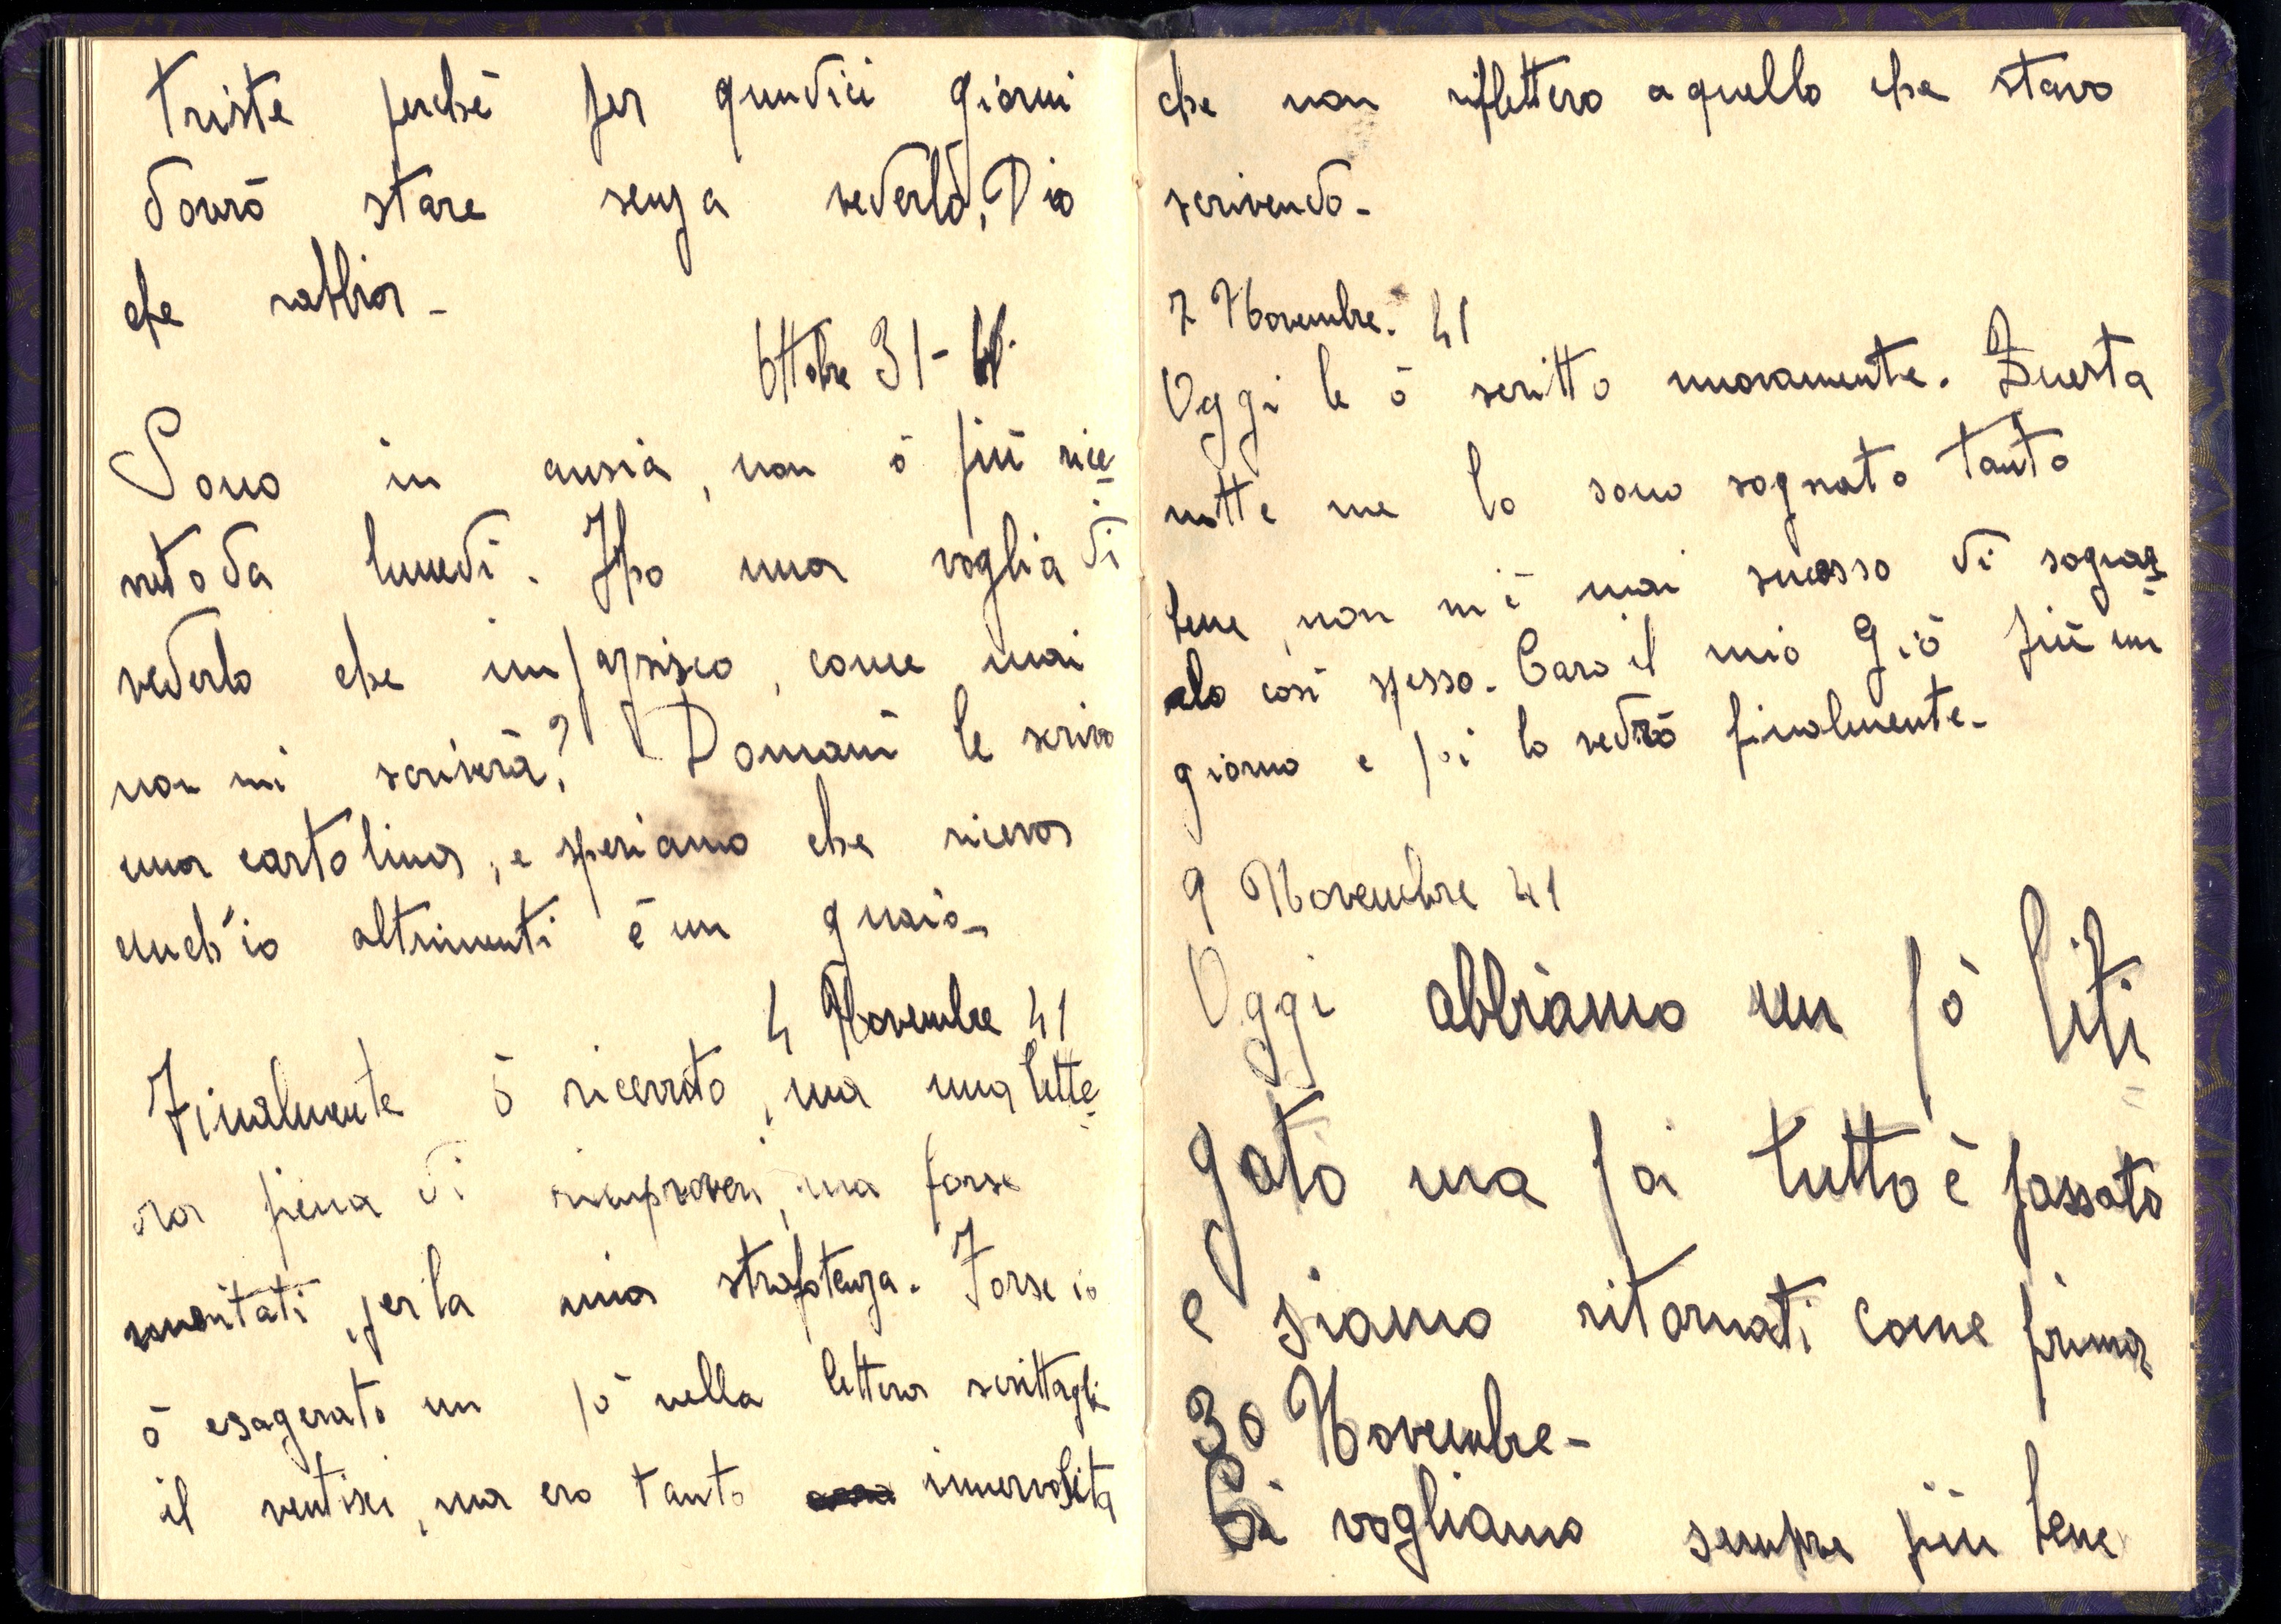 triste perchè per quindici giorni
dovrò stare senza vederlo, Dio
che rabbia -
Ottobre 31 - 41.
Sono in ansia, non ò più rice-
vuto da lunedì. Ho una voglia di
vederlo che impazzisco, come mai
non mi scriverà? Domani le scrivo
una cartolina, e speriamo che riceva
anch'io altrimenti è un guaio -
4 Novembre 41
Finalmente ò ricevuto, ma una lette=
ra piena di rimproveri, ma forse
meritati, per la mia strafotenza. Forse io
ò esagerato un pò nella lettera scrittagli
il ventisei, ma ero tanto innervosita
che non riflettevo a quello che stavo
scrivendo -
7 Novembre. 41
Oggi le ò scritto nuovamente. Questa
notte me lo sono sognato tanto
bene, non m'è mai sucesso di sognar=
elo così spesso. Caro il mio Giò più un
giorno e poi lo vedrò finalmente -
9 Novembre 41
Oggi abbiamo un pò liti
=
gato ma poi tutto è passato
e siamo ritornati come prima
30 Novembre -
Ci vogliamo sempre più bene